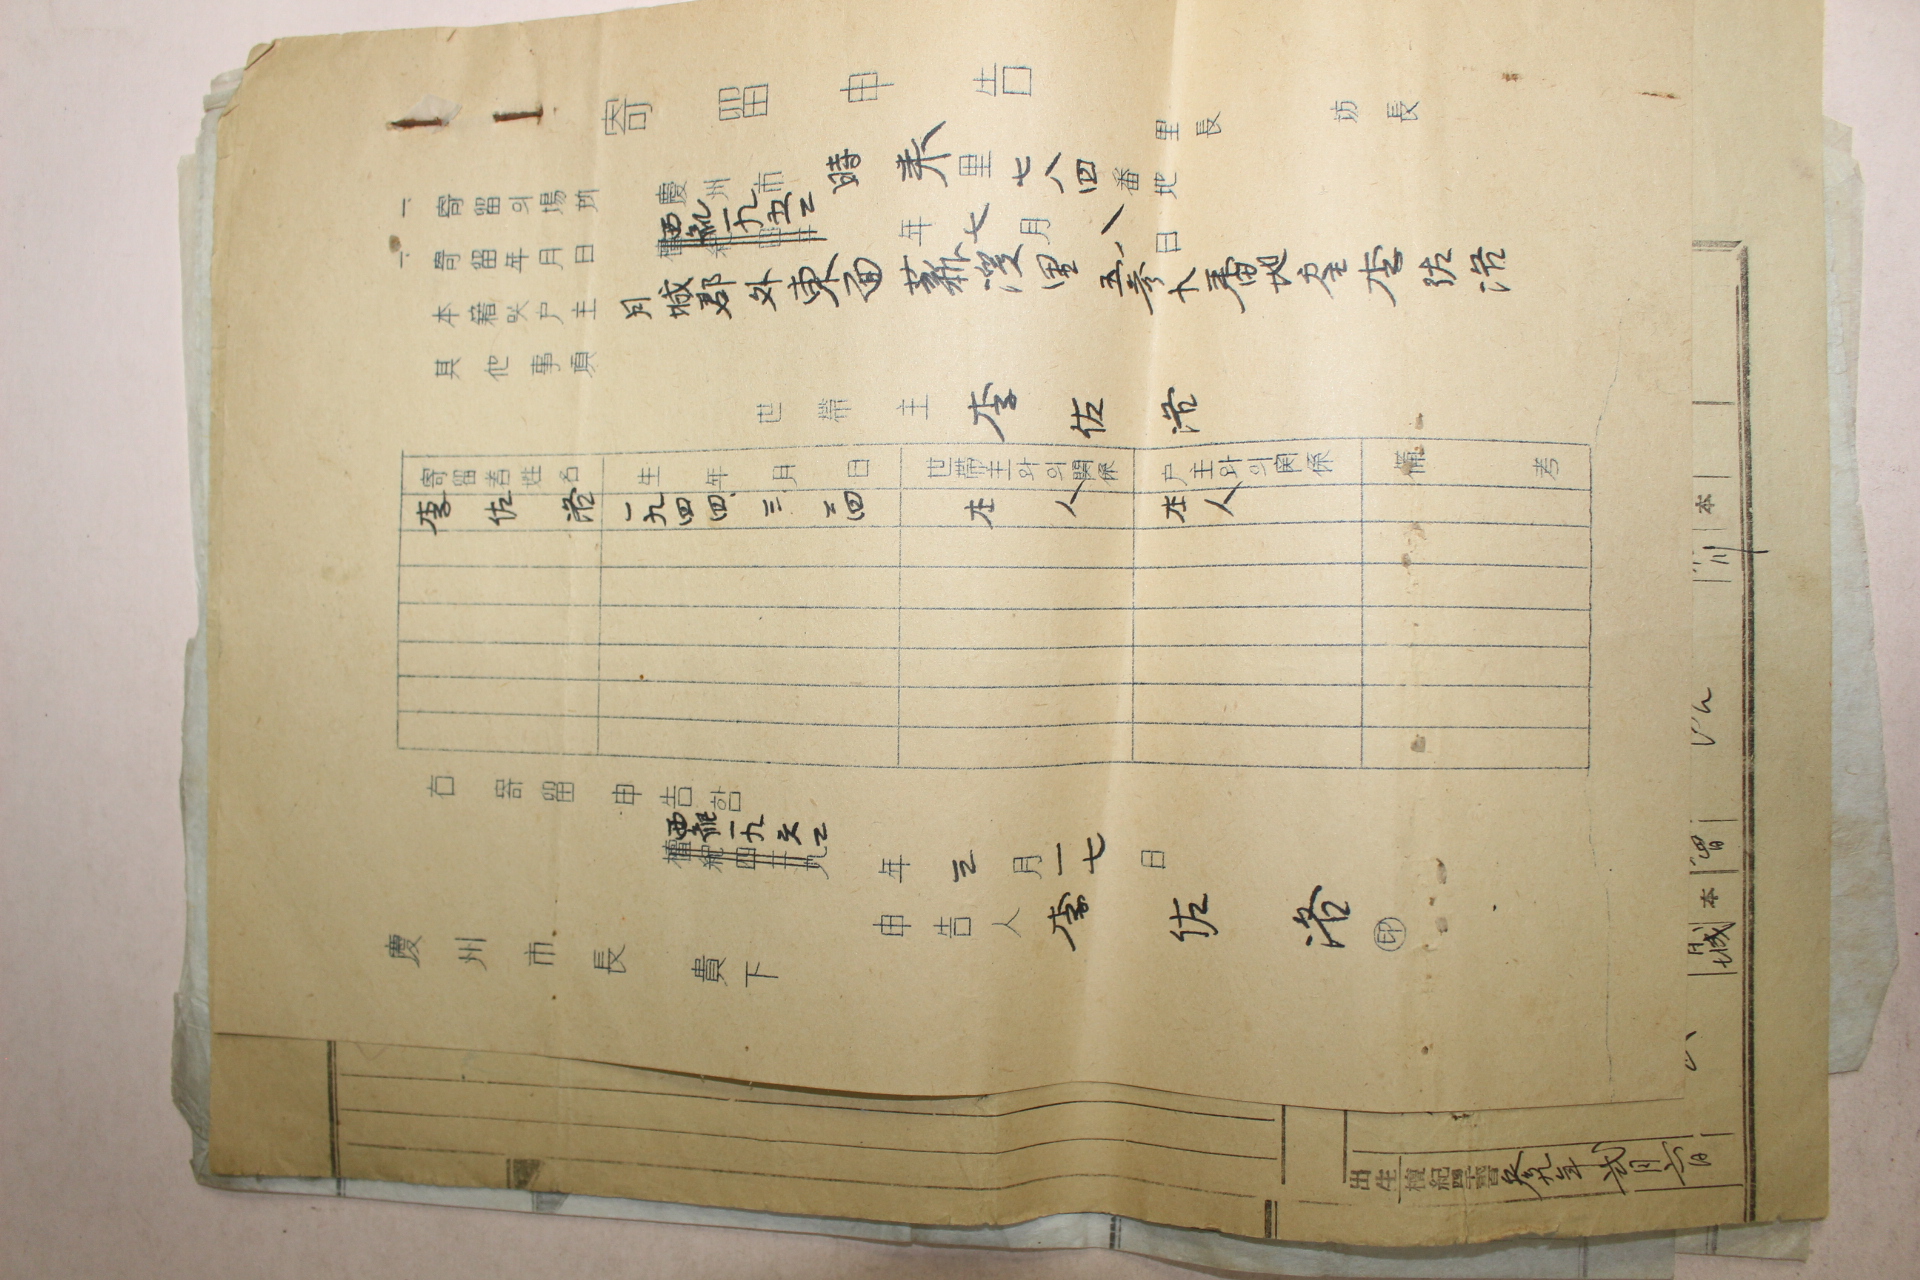 寄留申告
里長
坊長
一、寄留의場所 慶州市 時來里七八四番地
一、寄留年月日 西紀一九五二年七月八日
本籍及戶主 月城郡外東面
番地 戶主 李佐洛
其他事項
世帶主 李佐洛
寄留者姓名 生年月日 世帶主와의關係 戶主와의關係 備考
李佐洛 一九四四、三、二四 本人 本人
右寄留申告함
西紀一九六二年三月一七日
申告人 李佐洛 ㊞
慶州市長 貴下
本
本
月城
出生 檀紀四千